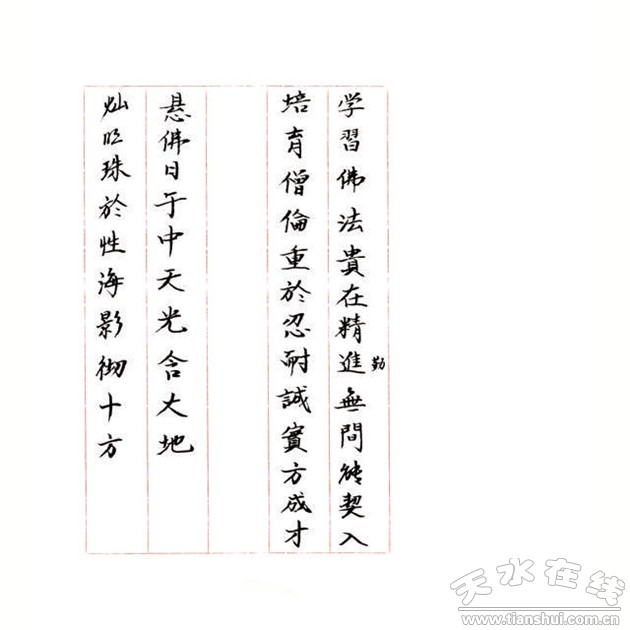 学習佛法貴在精進勤無間能契入
培育僧倫重於忍耐誠實方成才
悬佛日于中天光含大地
灿明珠於性海影彻十方
天水在线
www.tianshui.com.cn